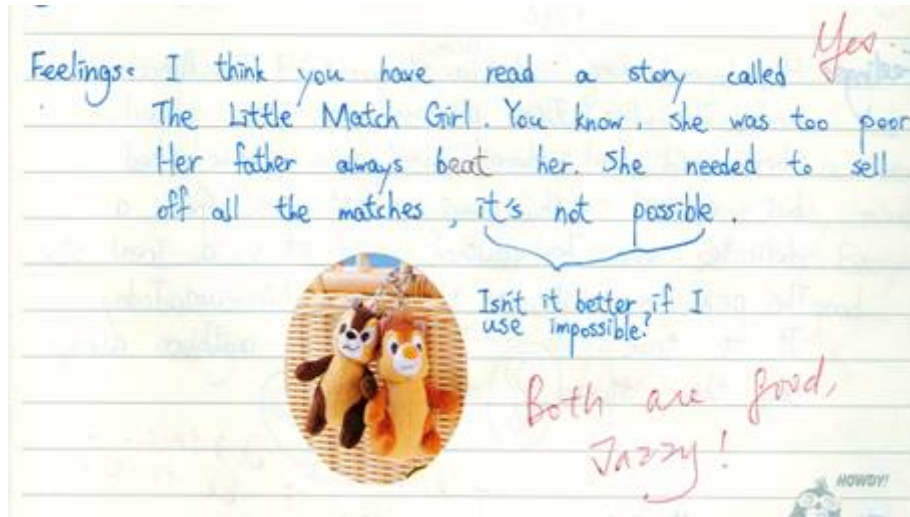 Yes.
Feelings: I think you have read a story called
The Little Match Girl. You know, she was too poor
Her father always beat her. She needed to sell
off all the matches, it's not possible.
Isn't it better, if I
use impossible?
Both are good,
Jazzy!
HOWDY!